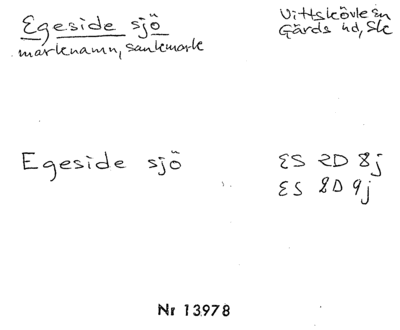 Egeside sjö
Vittskövle sn
marknamn, sankmark
Gärds hd, Sk
Egeside sjö
ES 2D 8j
ES 2D 9j
Nr 13978